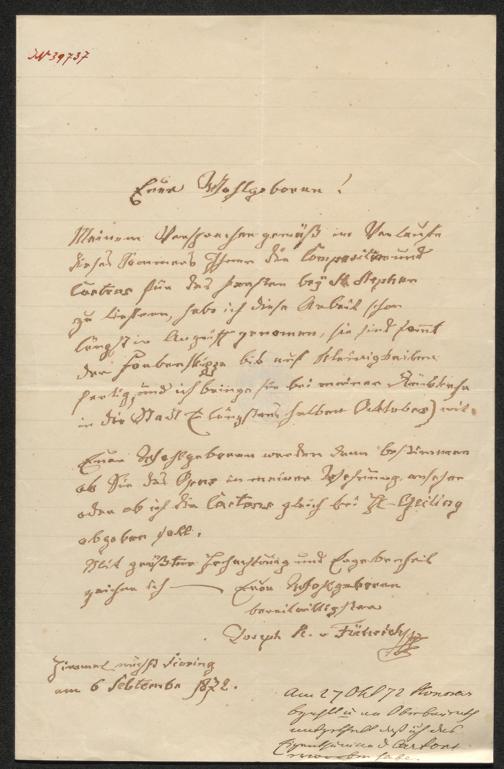 IN 39737
Euer Wohlgeboren!
Meinem Versprechen gemäß im Verlaufe
dieses Sommers Ihnen die Composition und
Cartons für das Fenster bey St. Stephan
zu liefern, habe ich diese Arbeit schon
längst in Angriff genommen, sie sind samt
der Farbenskizze bis auf Kleinigkeiten
fertig, und ich bringe sie bei meiner Rückkehr
in die Stadt (längstens halben Oktober) mit.
Euer Wohlgeboren werden dann bestimmen
ob Sie das Opus in meiner Wohnung ansehen
oder ob ich die Cartons gleich bei H. Geiling
abgeben soll.
Mit größter Hochachtung und Ergebenheit
zeichne ich — Euer Wohlgeboren
bereitwilligster
Joseph R. v Führich
nächst
am 6 September 1872.
Am 27 Okt 72 Honorar
bezahlt u an Oberbaurath
mitgetheilt daß ich das
Eigenthum an d Cartons
erworben habe.